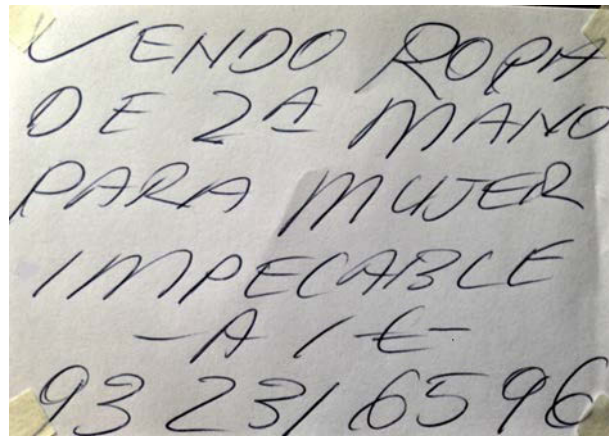 VENDO ROPA
DE 2ª MANO
PARA MUJER
IMPECABLE
-A 1 €-
93 231 65 96